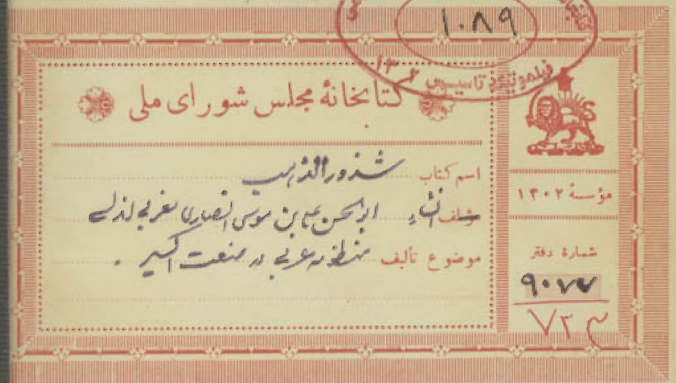 ۱۰۸۹
تاسیس ۱۳۰۲
کتابخانهٔ مجلس شورای ملی
اسم کتاب شذور الذهب
مؤلف انشاء ابو الحسن علی بن موسی انصاری مغربی اندلسی
موضوع تألیف منظومه عربی در صنعت اکسیر .
مؤسسهٔ ۱۳۰۲
شمارهٔ دفتر
۹۰۷۷
۷۲۳